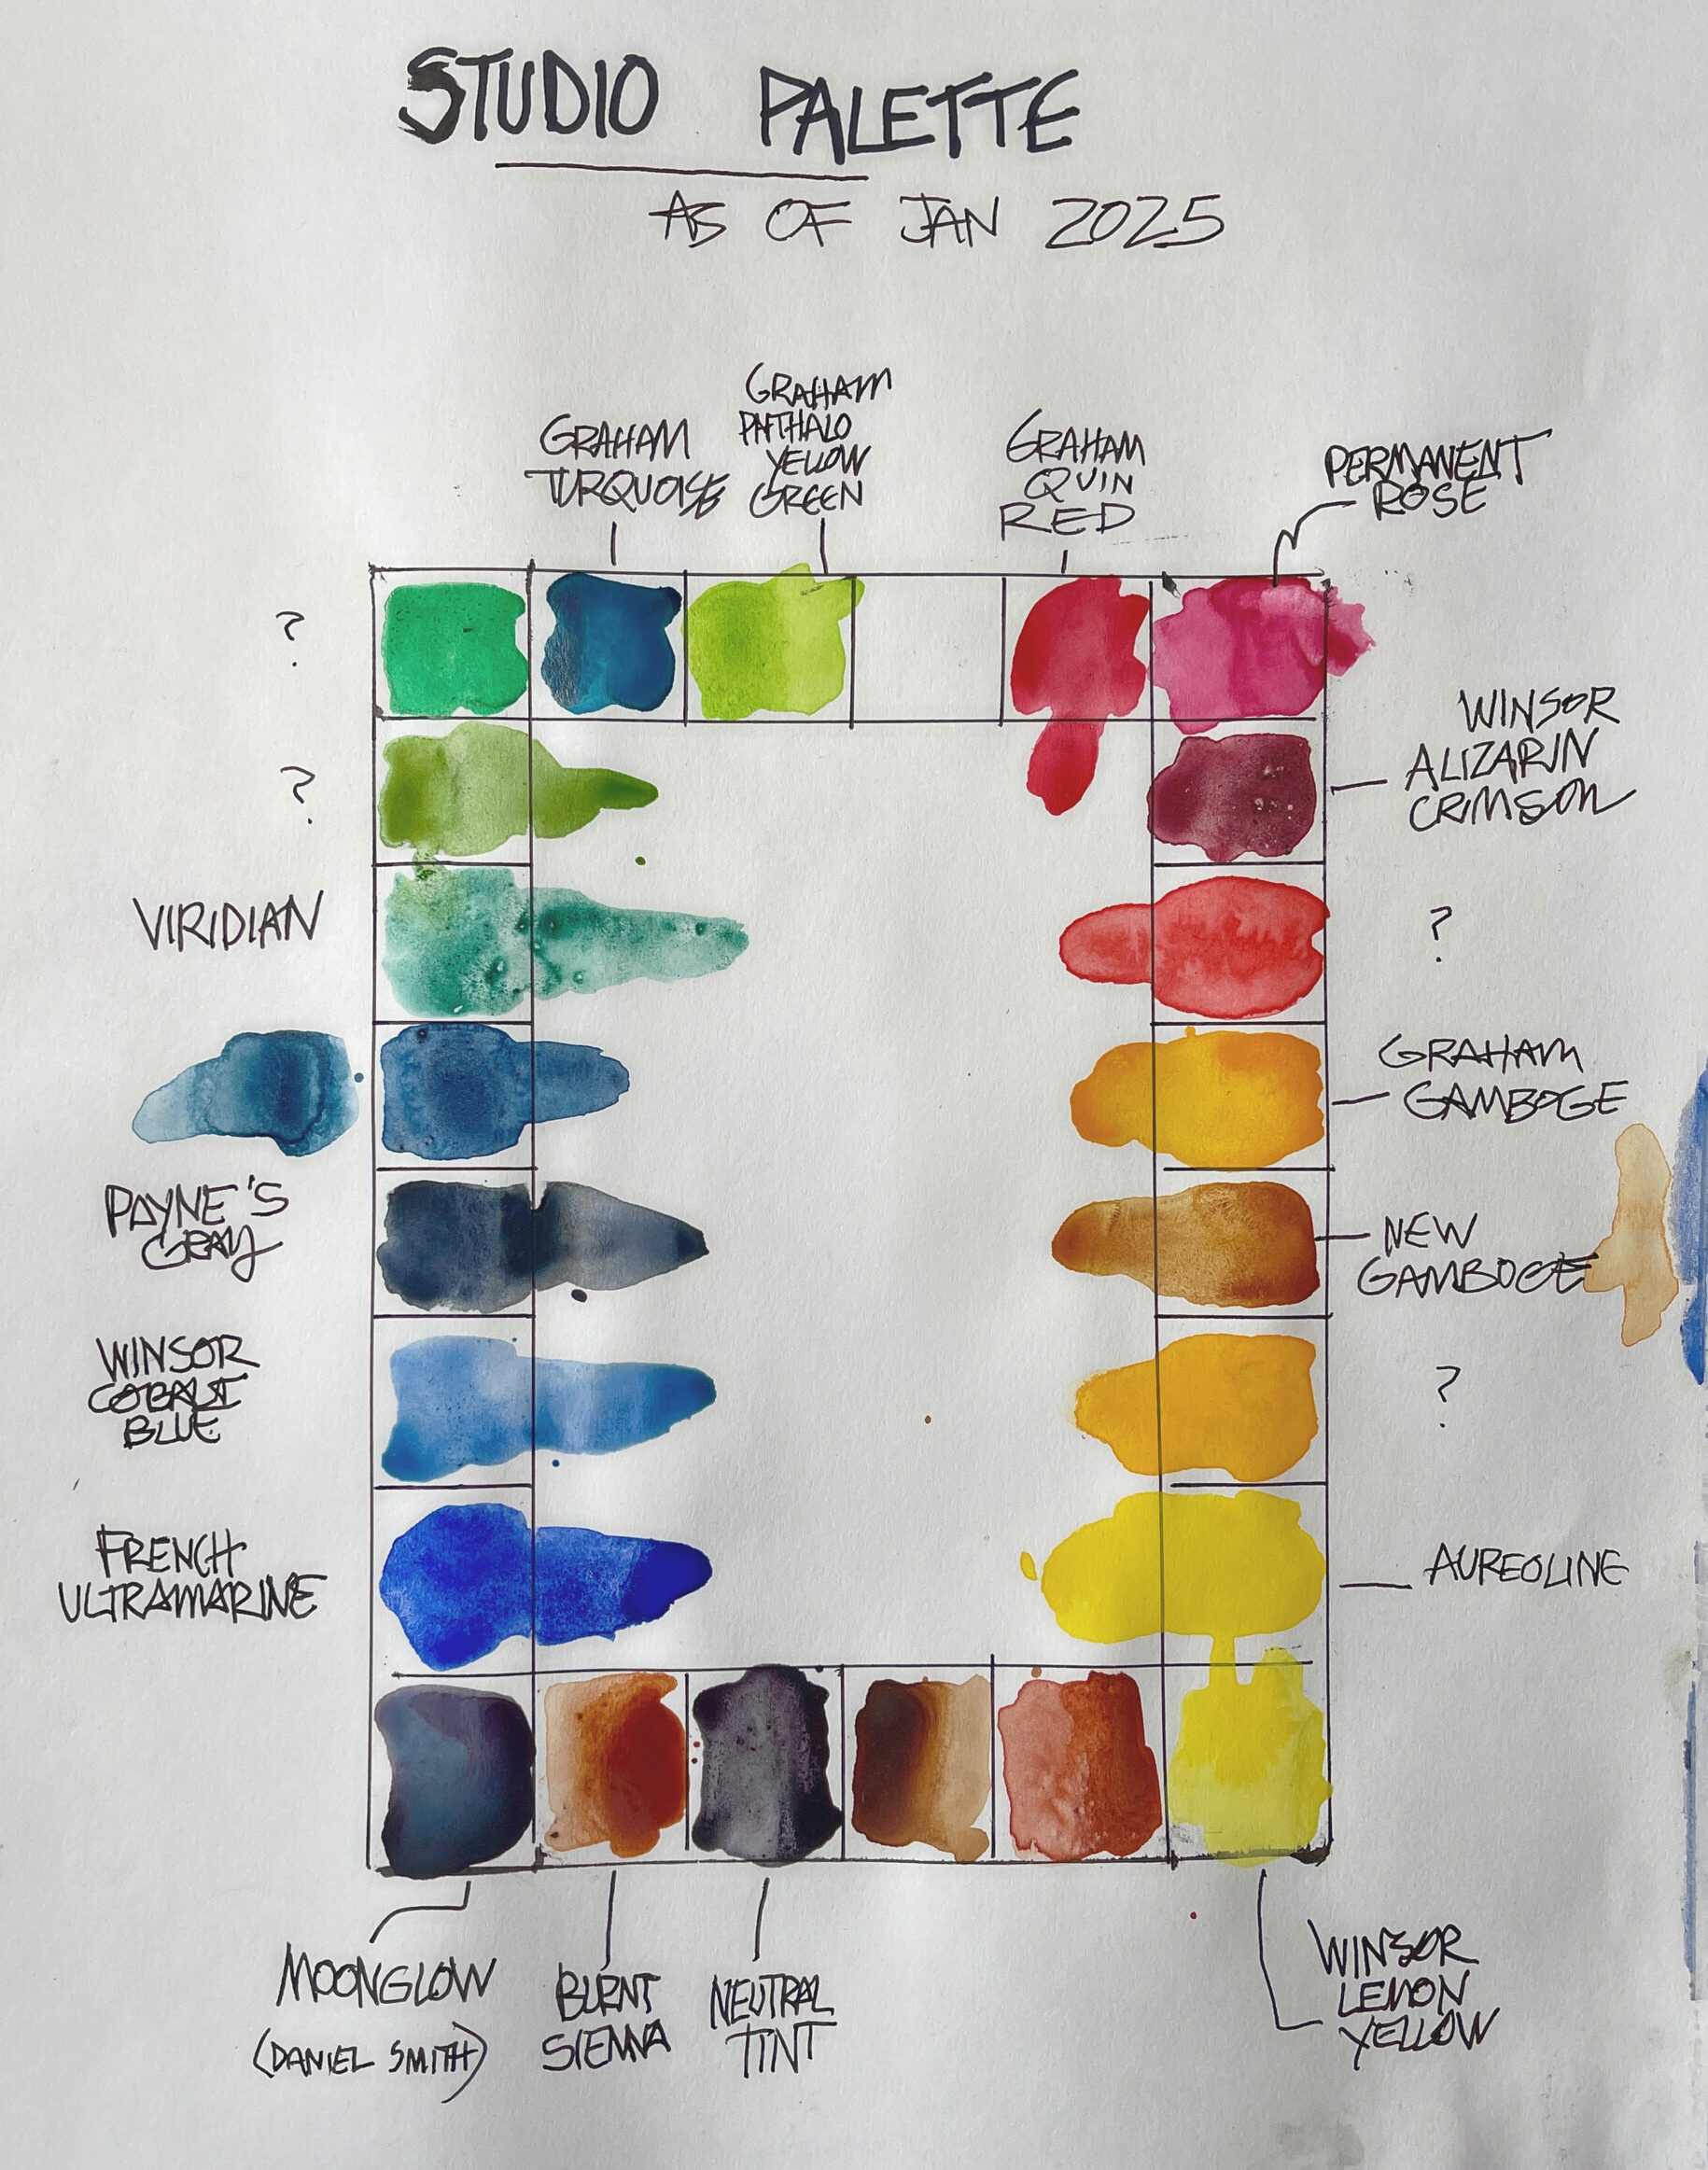 STUDIO PALETTE
AS OF JAN 2025
GRAHAM
TURQUOISE
GRAHAM
PHTHALO
YELLOW
GREEN
GRAHAM
QUIN
RED
PERMANENT
ROSE
?
WINSOR
ALIZARIN
CRIMSON
?
VIRIDIAN
?
GRAHAM
GAMBOGE
PAYNE'S
GRAY
NEW
GAMBOGE
WINSOR
COBALT
BLUE
?
FRENCH
ULTRAMARINE
AUREOLINE
MOONGLOW
(DANIEL SMITH)
BURNT
SIENNA
NEUTRAL
TINT
WINSOR
LEMON
YELLOW